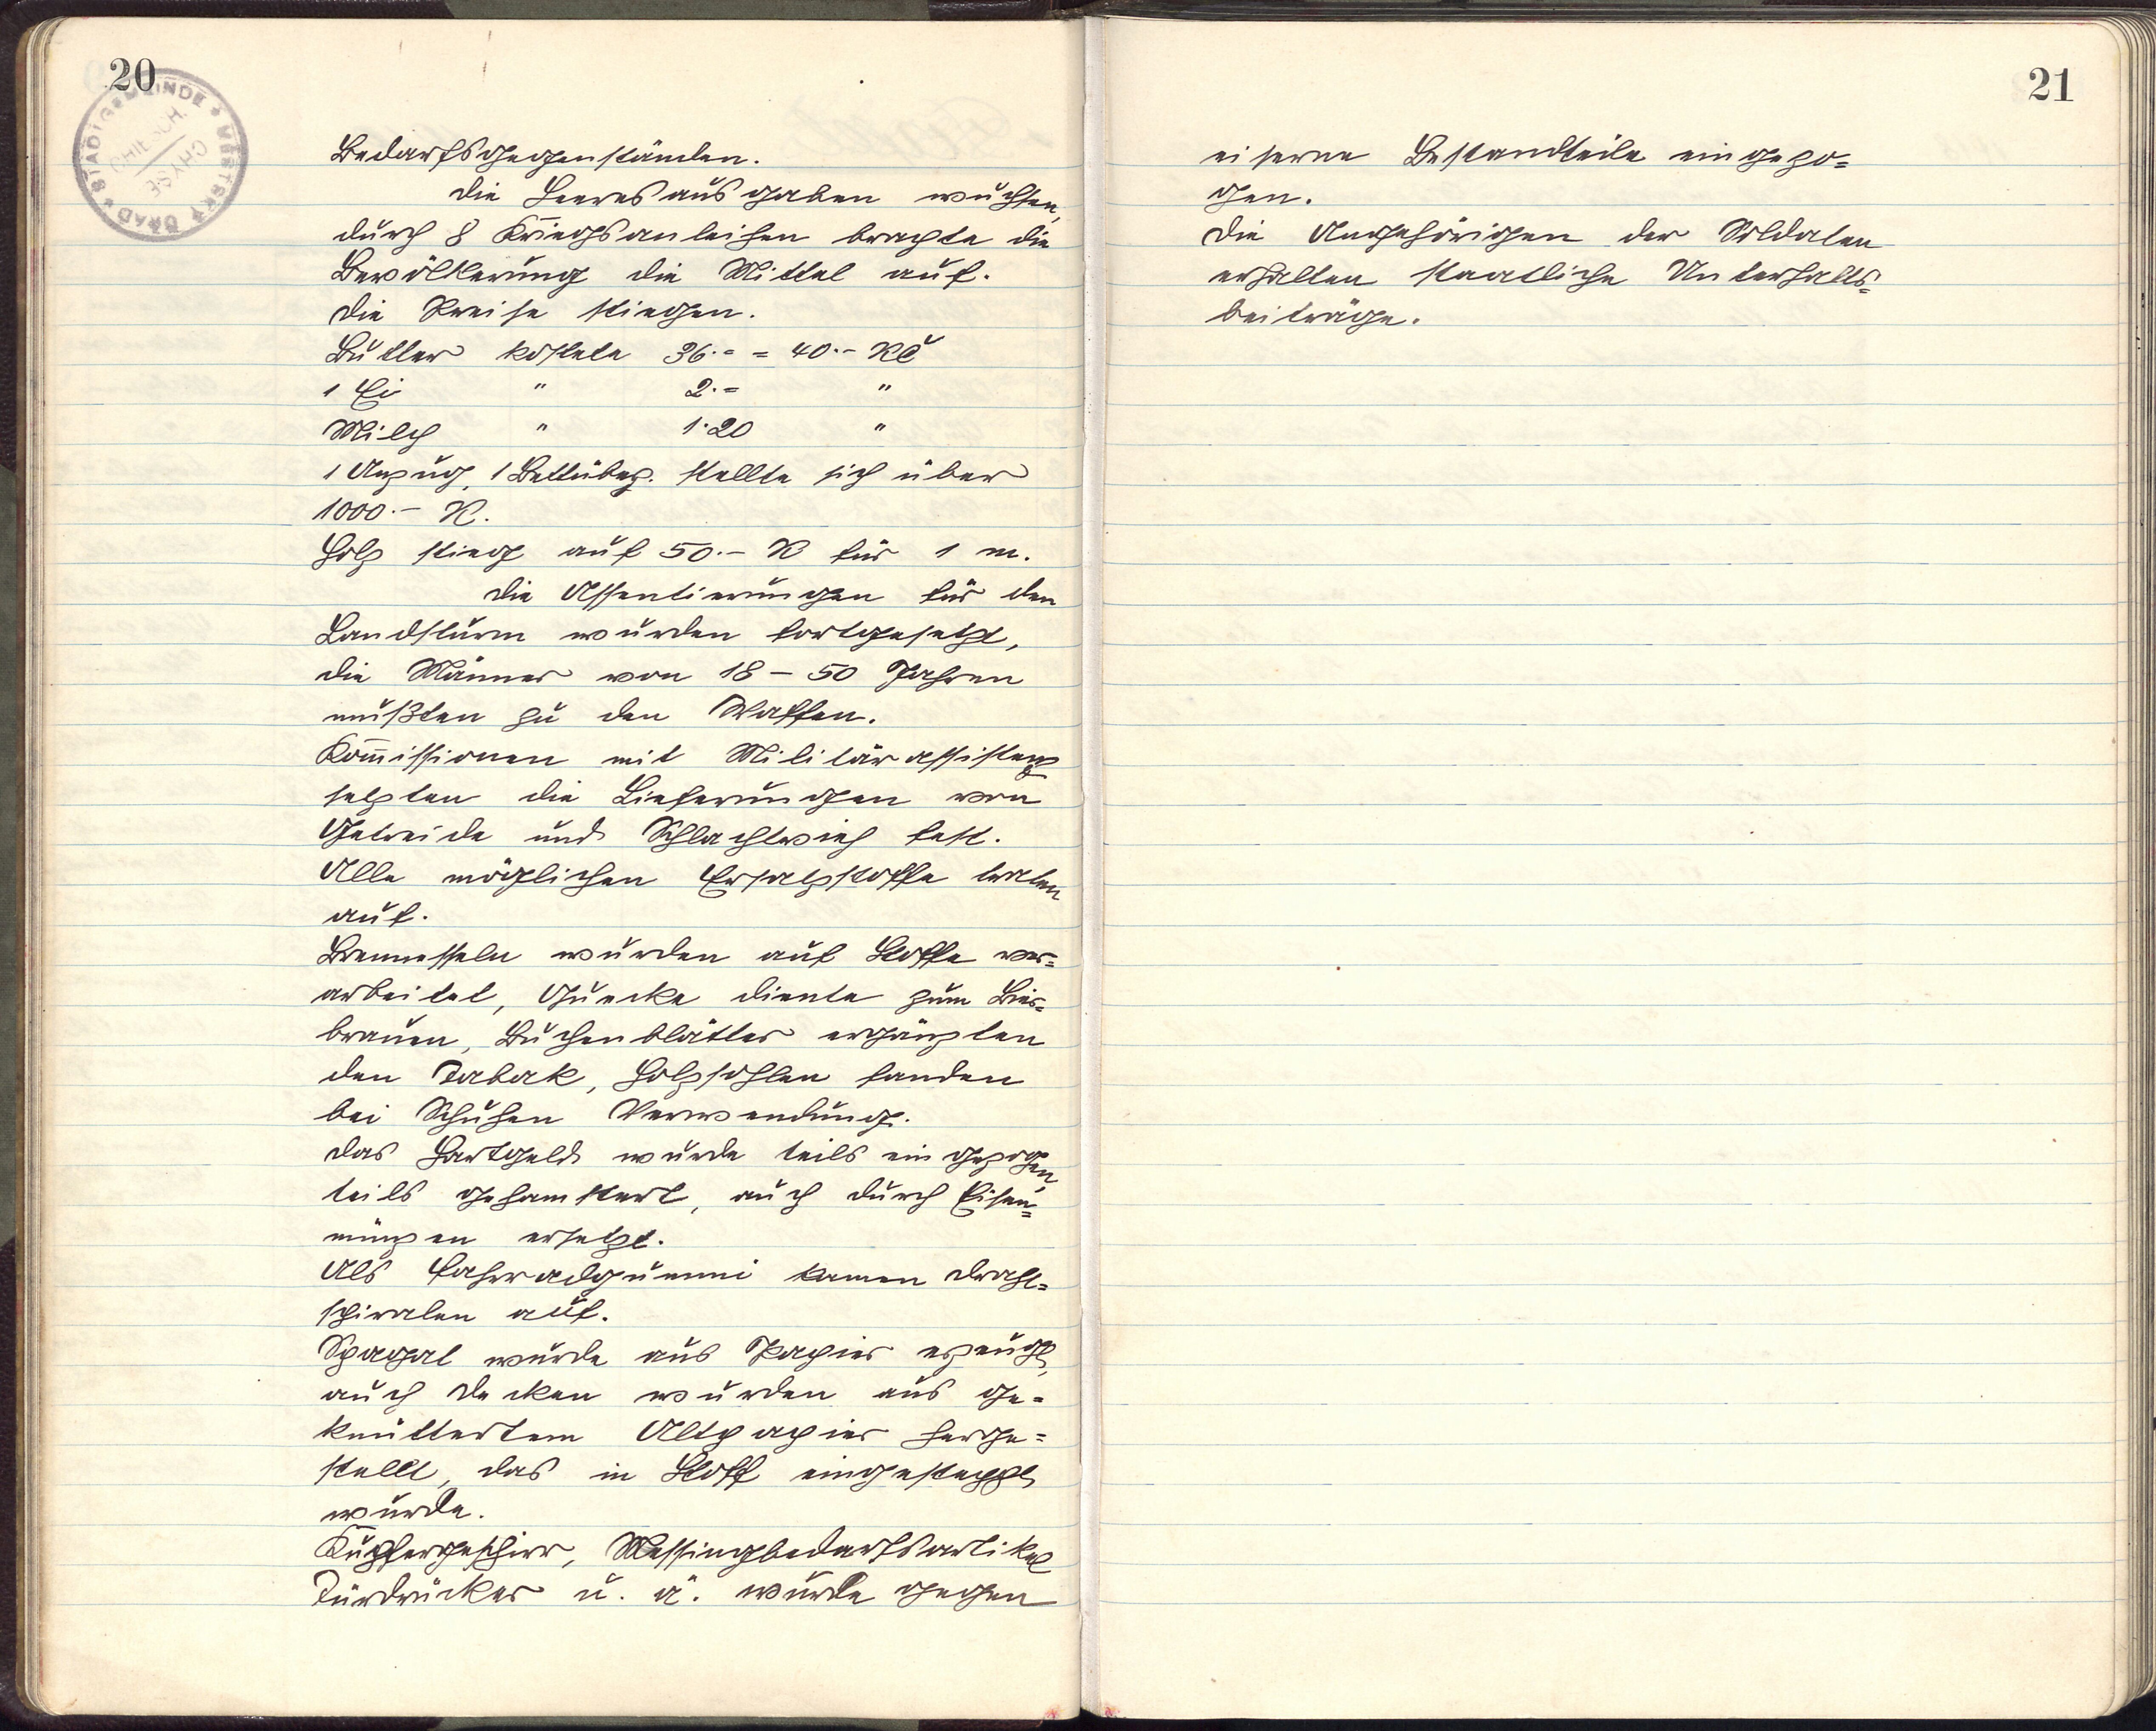 20
STADTGEMEINDE
CHIESCH
CHYŠE
MĚSTSKÝ ÚŘAD
Bedarfsgegenständen.
Die Heeresausgaben wuchsen,
durch 8 Kriegsanleihen brachte die
Bevölkerung die Mittel auf.
Die Preise stiegen.
Butter kostete 36.- = 40.- Kč
1 Ei " 2.- "
Milch " 1.20 "
1 Anzug, 1 Bettüberz. stellte sich über
1000.- K.
Holz stieg auf 50.- K für 1 m.
Die Assentierungen für den
Landsturm wurden fortgesetzt,
die Männer von 18 – 50 Jahren
mußten zu den Waffen.
Kom̄issionen mit Militärassistenz
setzten die Lieferungen von
Getreide und Schlachtvieh fest.
Alle möglichen Ersatzstoffe traten
auf.
Brennesseln wurden auf Stoffe ver=
arbeitet, Quecke diente zum Bier=
brauen, Buchenblätter ergänzten
den Tabak, Holzsohlen fanden
bei Schuhen Verwendung.
Das Hartgeld wurde teils eingezogen,
teils gehamstert, auch durch Eisen=
münzen ersetzt.
Als Fahrradgummi kamen Draht=
spiralen auf.
Spagat wurde aus Papier erzeugt,
auch Decken wurden aus ge=
knüttertem Altpapier herge=
stellt, das in Stoff eingesteppt
wurde.
Kupfergeschirr, Messingbedarfsartikel
Türdrücker u. ä. wurde gegen
21
eiserne Bestandteile eingezo=
gen.
Die Angehörigen der Soldaten
erhalten staatliche Unterhalts=
beiträge.